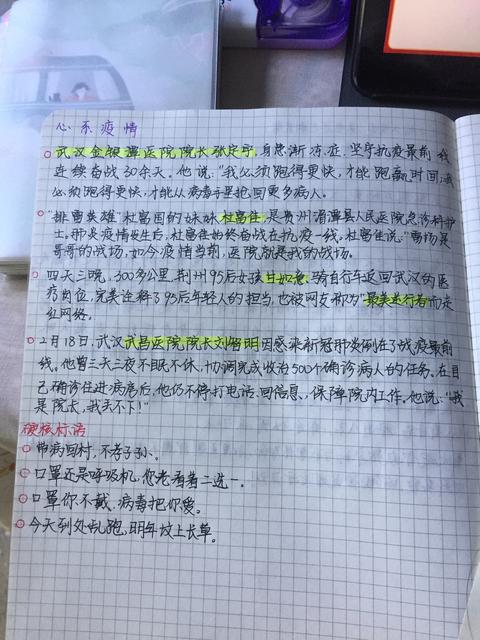 心系疫情
武汉金银潭医院院长张定宇,身患渐冻症,坚守抗疫最前
连续奋战30余天。他说:"我必须跑得更快,才能跑赢时间;我
必须跑得更快,才能从病毒手里抢回更多病人。
"排雷英雄"杜富国的妹妹杜富佳是贵州湄潭县人民医院急诊科护
士。那是疫情发生后,杜富佳始终奋战在抗疫一线。杜富佳说:"雷场是
哥哥的战场,如今疫情当前,医院就是我的战场。
四天三晚,300多公里,荆州95后女孩甘如意,骑自行车返回武汉的医
疗岗位,完美诠释了95后年轻人的担当,也被网友称为"最美逆行者"而走
红网络。
2月18日,武汉武昌医院院长刘智明因感染新冠肺炎倒在了战疫最前
线。他曾三天三夜不眠不休,协调完成收治500个确诊病人的任务。在自
己确诊住进病房后,他仍不停打电话、回信息,保障院内工作。他说:"我
是院长,我丢不下!"
硬核标语
带病回村,不孝子孙。
口罩还是呼吸机,您老看着二选一。
口罩你不戴,病毒把你爱。
今天到处乱跑,明年坟上长草。